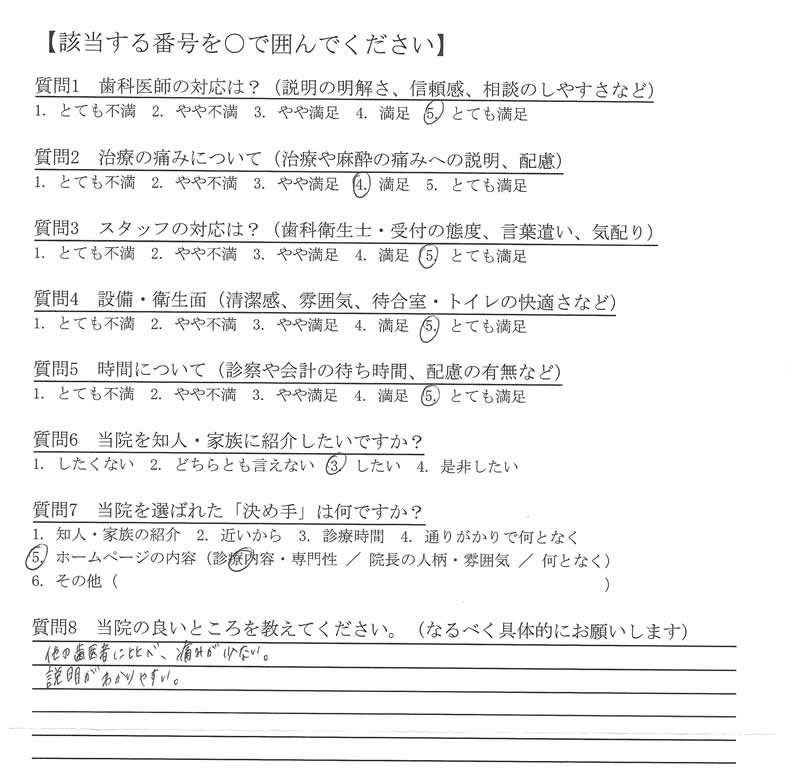 【該当する番号を〇で囲んでください】
質問1　歯科医師の対応は？（説明の明解さ、信頼感、相談のしやすさなど）
1. とても不満　2. やや不満　3. やや満足　4. 満足　5. とても満足
質問2　治療の痛みについて（治療や麻酔の痛みへの説明、配慮）
1. とても不満　2. やや不満　3. やや満足　4. 満足　5. とても満足
質問3　スタッフの対応は？（歯科衛生士・受付の態度、言葉遣い、気配り）
1. とても不満　2. やや不満　3. やや満足　4. 満足　5. とても満足
質問4　設備・衛生面（清潔感、雰囲気、待合室・トイレの快適さなど）
1. とても不満　2. やや不満　3. やや満足　4. 満足　5. とても満足
質問5　時間について（診察や会計の待ち時間、配慮の有無など）
1. とても不満　2. やや不満　3. やや満足　4. 満足　5. とても満足
質問6　当院を知人・家族に紹介したいですか？
1. したくない　2. どちらとも言えない　3. したい　4. 是非したい
質問7　当院を選ばれた「決め手」は何ですか？
1. 知人・家族の紹介　2. 近いから　3. 診療時間　4. 通りがかりで何となく
5. ホームページの内容（診療内容・専門性 ／ 院長の人柄・雰囲気 ／ 何となく）
6. その他（　　　　　　　　　　　　　　　　）
質問8　当院の良いところを教えてください。（なるべく具体的にお願いします）
他の歯医者に比べ、痛みが少ない。
説明がわかりやすい。